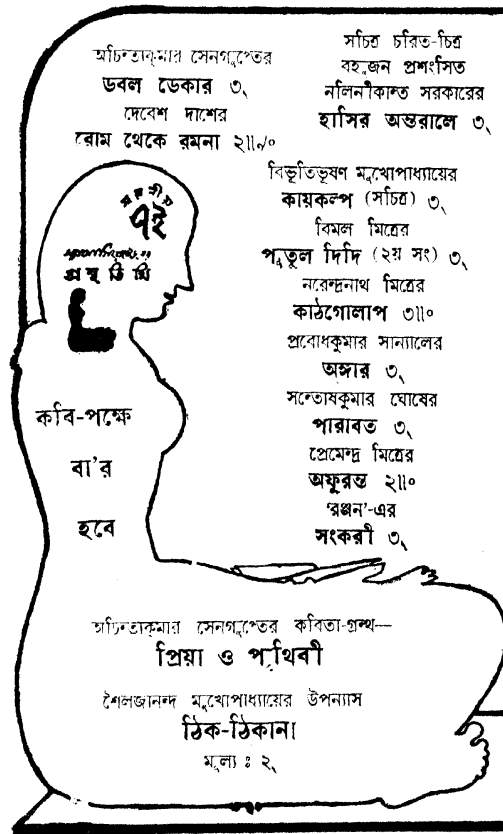 অচিন্ত্যকুমার সেনগুপ্তের
ডবল ডেকার ৩৲
দেবেশ দাশের
রোম থেকে রমনা ২॥৵০
সচিত্র চরিত-চিত্র
বহুজন প্রশংসিত
নলিনীকান্ত সরকারের
হাসির অন্তরালে ৩৲
বিভূতিভূষণ মুখোপাধ্যায়ের
কায়কল্প (সচিত্র) ৩৲
বিমল মিত্রের
পুতুল দিদি (২য় সং) ৩৲
নরেন্দ্রনাথ মিত্রের
কাঠগোলাপ ৩॥০
প্রবোধকুমার সান্যালের
অঙ্গার ৩৲
সন্তোষকুমার ঘোষের
পারাবত ৩৲
প্রেমেন্দ্র মিত্রের
অফুরন্ত ২॥০
'রঞ্জন'-এর
সংকরী ৩৲
এই
কবি-পক্ষে
বা'র
হবে
অচিন্ত্যকুমার সেনগুপ্তের কবিতা-গ্রন্থ—
প্রিয়া ও পৃথিবী
শৈলজানন্দ মুখোপাধ্যায়ের উপন্যাস
ঠিক-ঠিকানা
মূল্য : ২৲